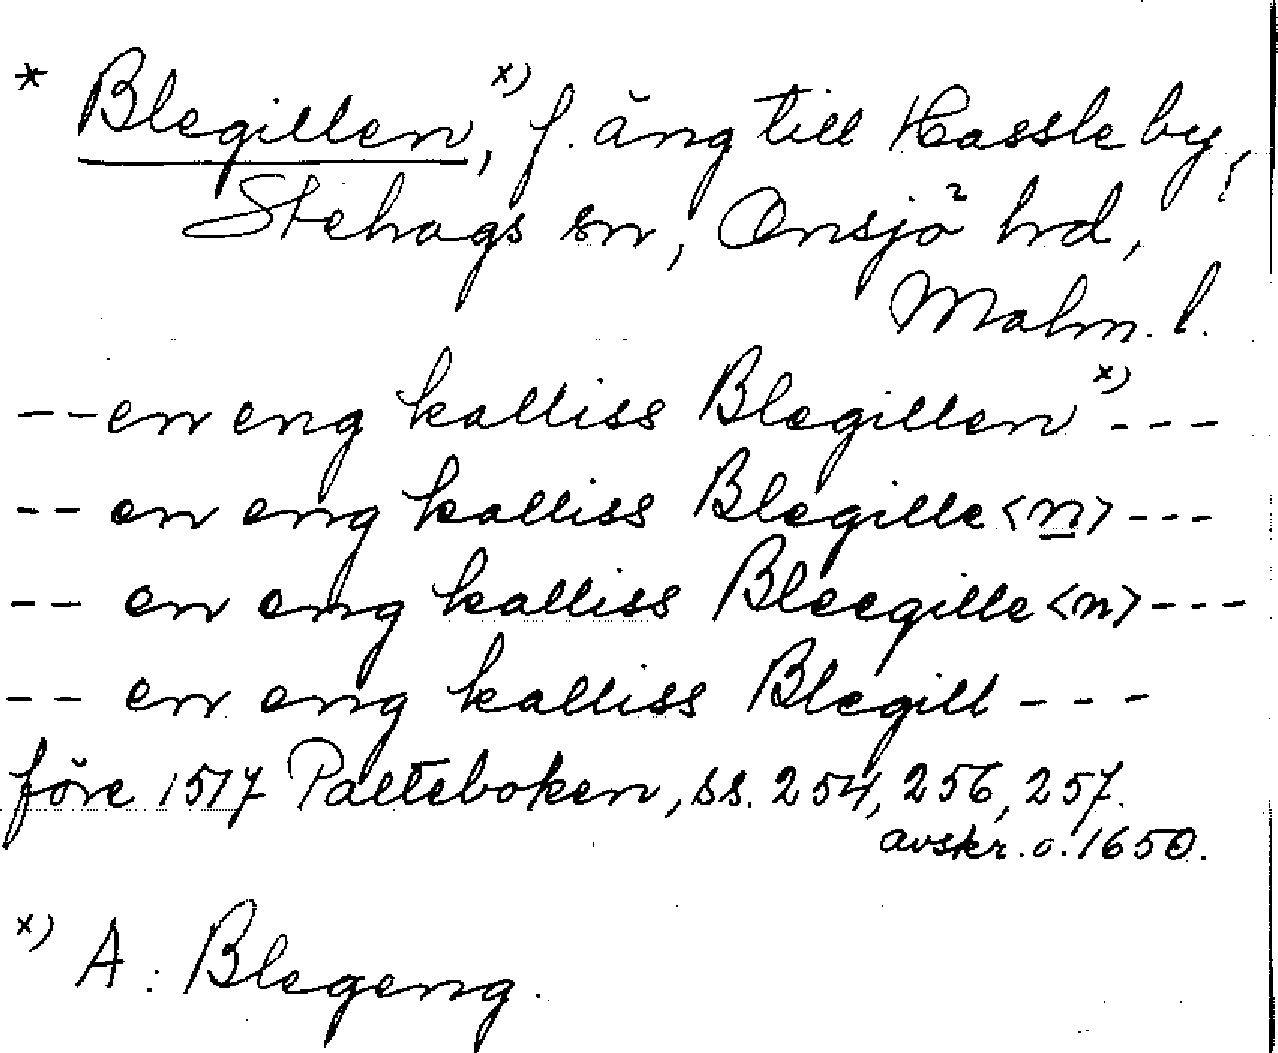 * Blegillen,ˣ⁾ f. äng till Hassle by,
Stehags sn, Onsjö hrd,
Malm. l.
-- en eng kalliss Blegillenˣ⁾ ---
-- en eng kalliss Blegille<n> ---
-- en eng kalliss Bleegille<n> ---
-- en eng kalliss Blegill ---
före 1517 Palteboken, ss. 254, 256, 257.
avskr. o. 1650.
ˣ⁾ A: Blegeng.